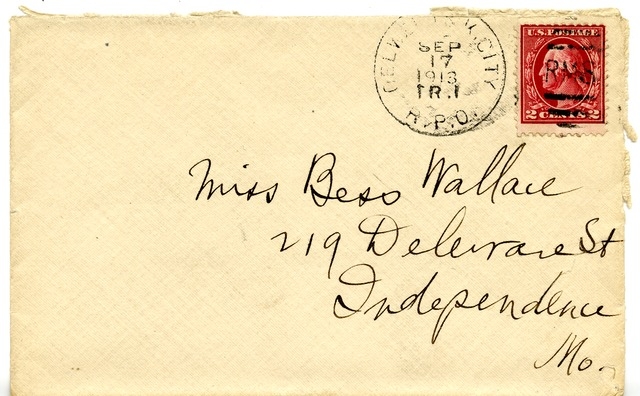 SEP
17
1913
TR.1
R.P.O.
CITY
U.S. POSTAGE
RMS
2 CENTS 2
Miss Bess Wallace
219 Delaware St
Independence
Mo.